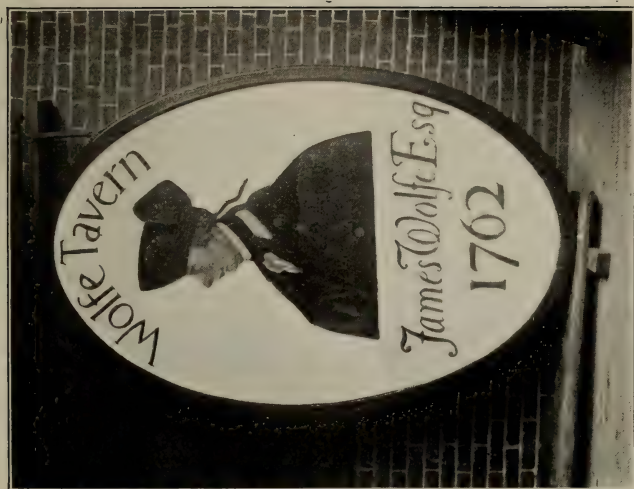 Wolfe Tavern
James Wolfe Esq
1762